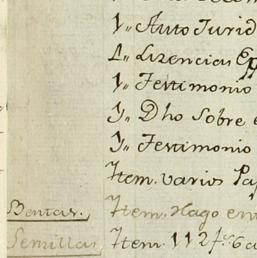 Y,, Auto Jurid
Y,, Lizencias Ep
Y,, Testimonio
Y,, Dho Sobre e
Y,, Testimonio
Ytem. varios Pap
Bentas. Ytem. Hago en
Semillas Ytem. 112 f